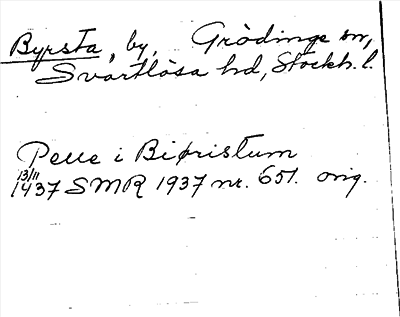 Byrsta, by, Grödinge sn,
Svartlösa hd, Stockh. l.
Pelle i Biþristum
13/11
1437 SMR 1937 nr. 651. orig.